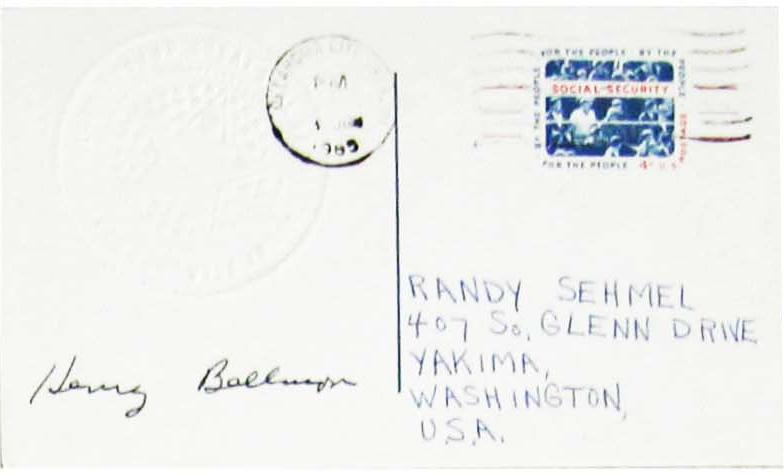 PM
FOR THE PEOPLE BY THE
PEOPLE
SOCIAL SECURITY
BY THE PEOPLE
FOR THE PEOPLE
4¢ U.S. POSTAGE
RANDY SEHMEL
407 So. GLENN DRIVE
YAKIMA,
WASHINGTON,
U.S.A.
Henry Bellmon